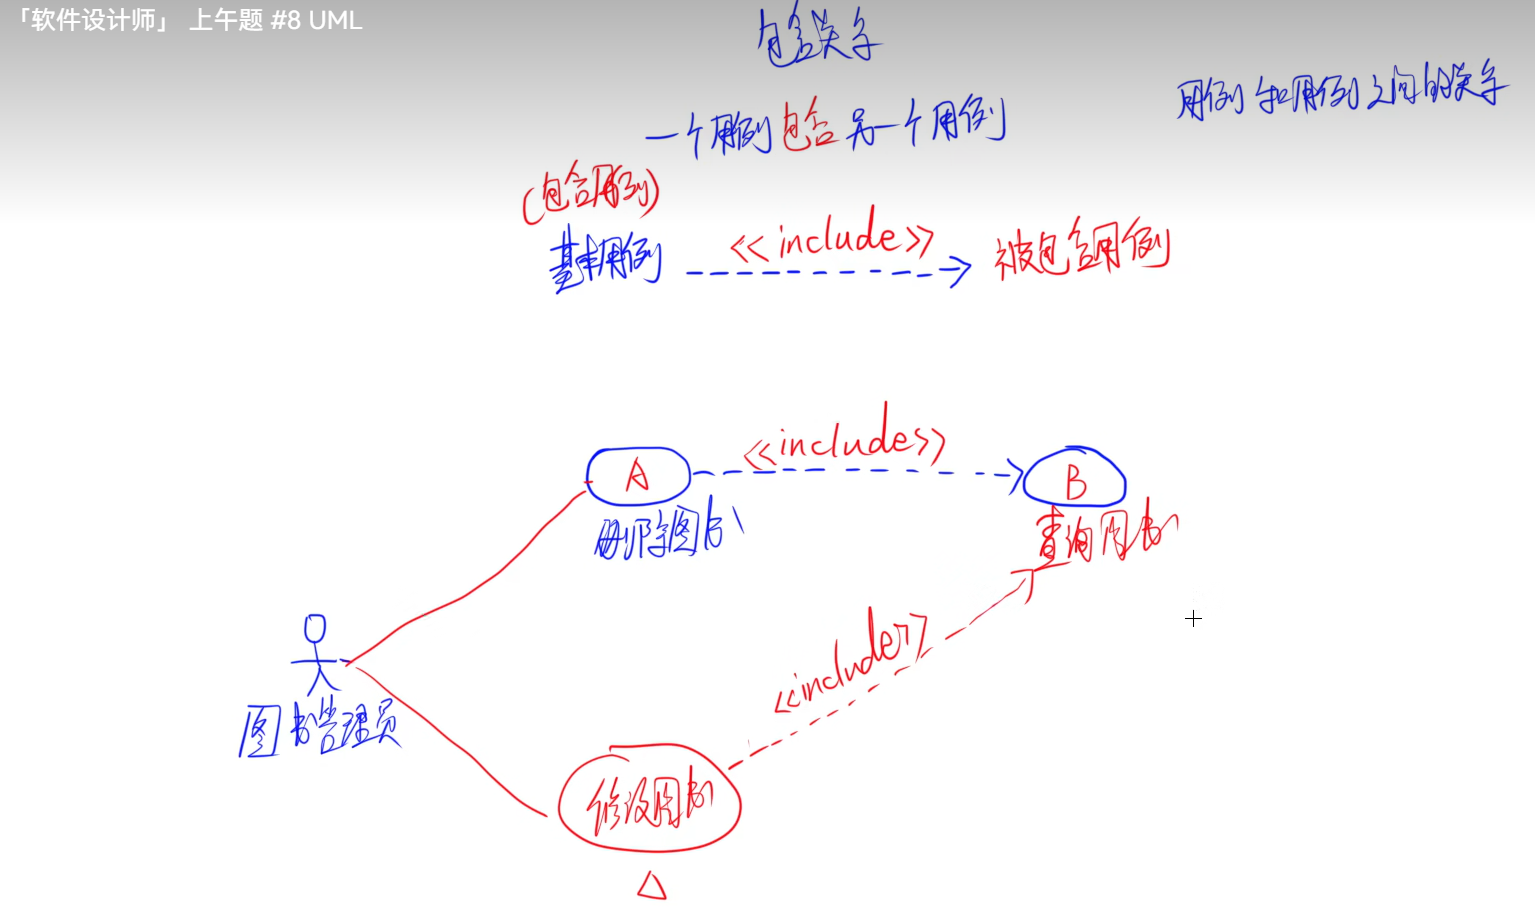 「软件设计师」 上午题 #8 UML
包含关系
用例和用例之间的关系
一个用例包含另一个用例
(包含用例)
基本用例 <<include>> 被包含用例
A <<include>> B
删除图书
查询图书
<<include>>
图书管理员
修改图书